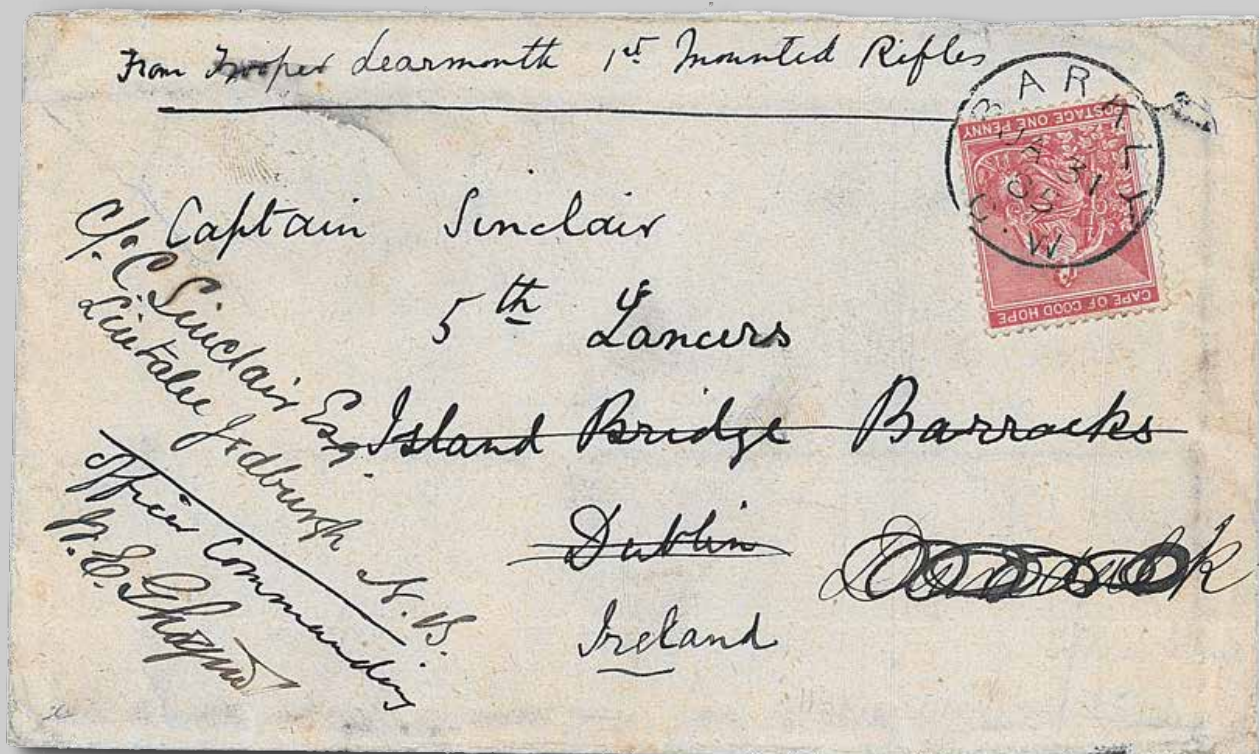 From Trooper Learmonth 1st Mounted Rifles
BARKLY
JA 31
C.W
POSTAGE ONE PENNY
CAPE OF GOOD HOPE
Captain Sinclair
5th Lancers
Island Bridge Barracks
Dublin
Ireland
C/o. C. Sinclair Esq.
Jedburgh N.B.
Officer Commanding